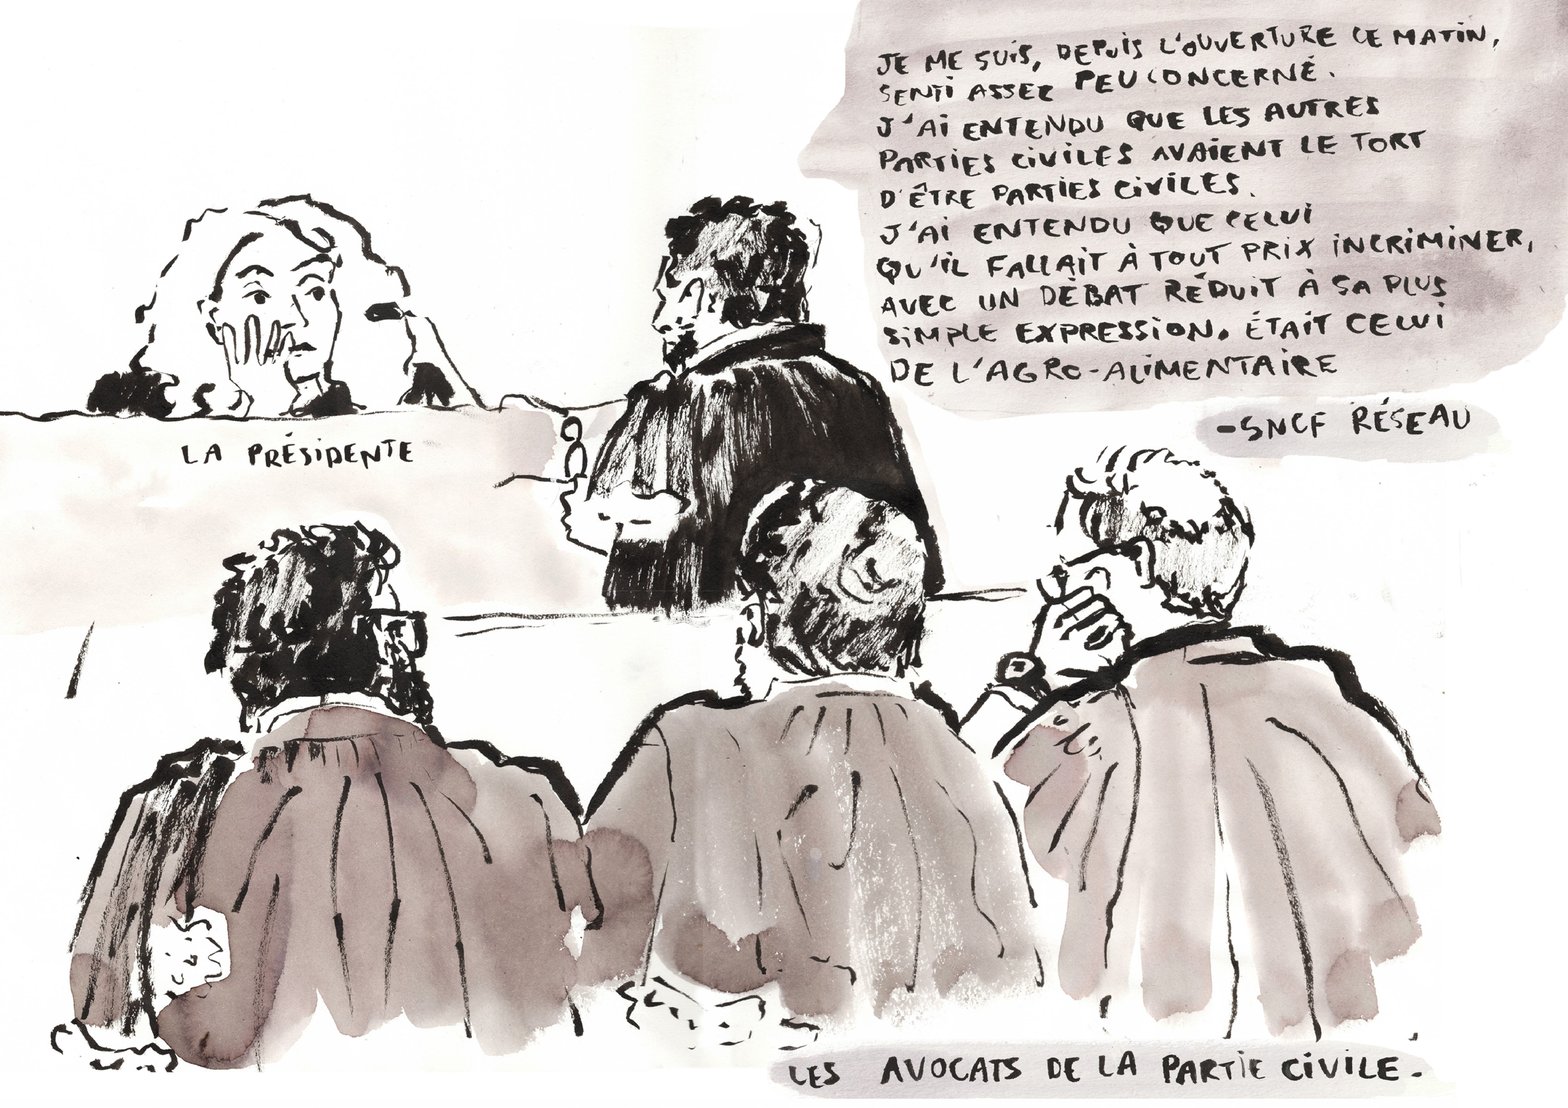 JE ME SUIS, DEPUIS L'OUVERTURE CE MATIN,
SENTI ASSEZ PEU CONCERNÉ.
J'AI ENTENDU QUE LES AUTRES
PARTIES CIVILES AVAIENT LE TORT
D'ÊTRE PARTIES CIVILES.
J'AI ENTENDU QUE CELUI
QU'IL FALLAIT À TOUT PRIX INCRIMINER,
AVEC UN DÉBAT RÉDUIT À SA PLUS
SIMPLE EXPRESSION, ÉTAIT CELUI
DE L'AGRO-ALIMENTAIRE
-SNCF RÉSEAU
LA PRÉSIDENTE
LES AVOCATS DE LA PARTIE CIVILE.